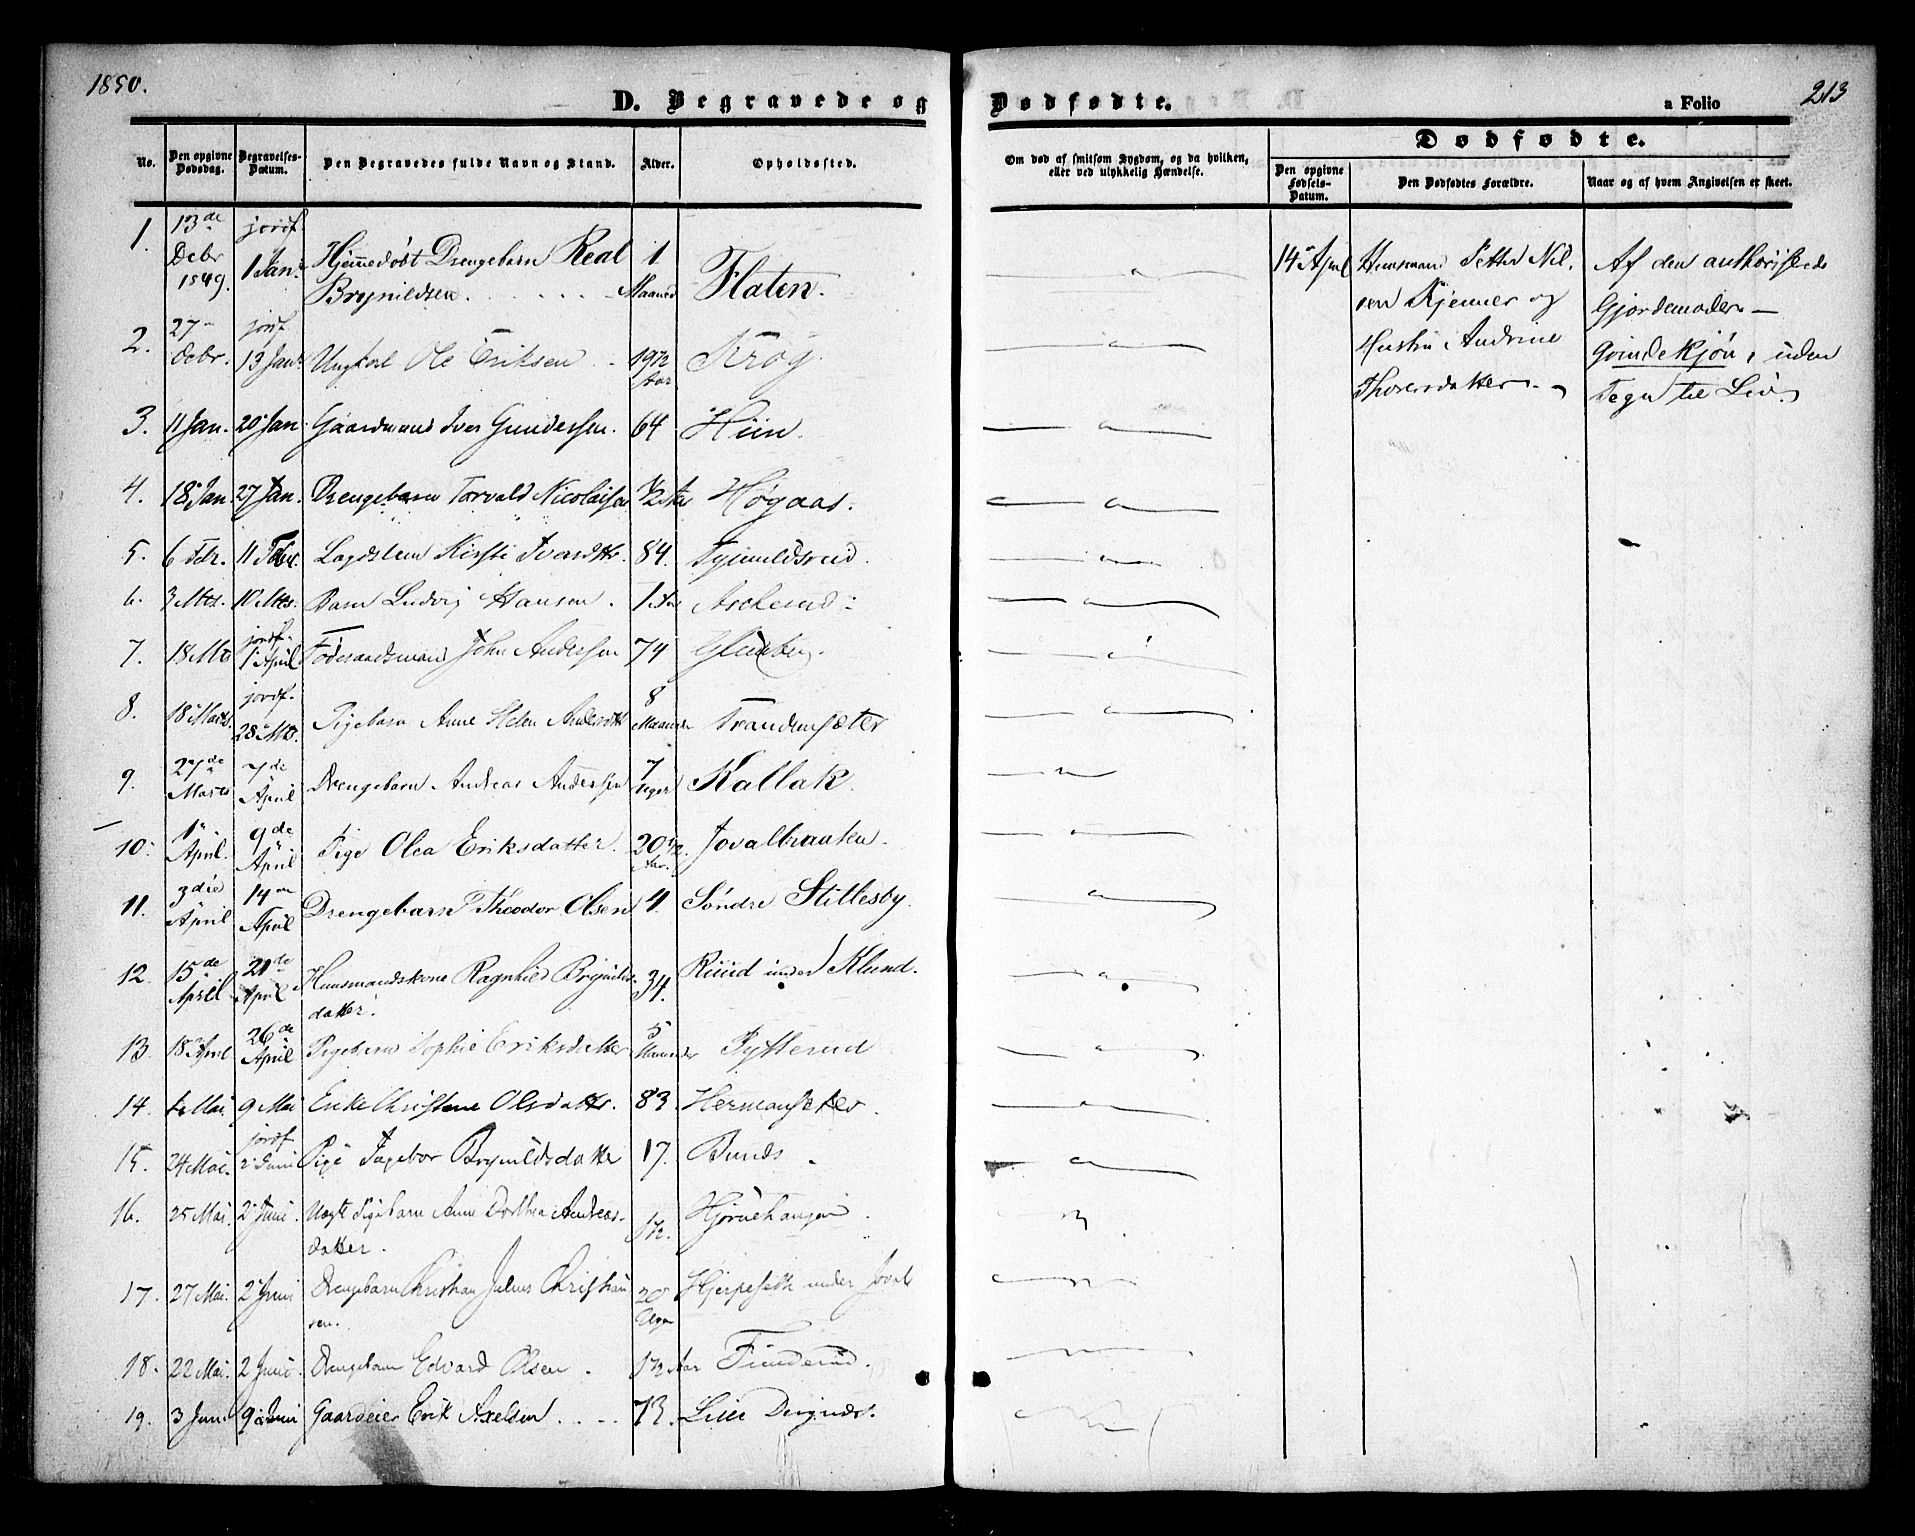 1850.
D. Begravede og Dødfødte.
a Folio 213
No.
Den opgivne Dødsdag.
Begravelses-Datum.
Den Begravedes fulde Navn og Stand.
Alder.
Opholdssted.
Om død af smitsom Sygdom, og da hvilken,
eller ved ulykkelig Hændelse.
Dødfødte.
Den opgivne Fødsels-Datum.
Den Dødfødtes Forældre.
Naar og af hvem Angivelsen er skeet.
1. 13de Debr 1849. jordf. 1 Jan. Hjemmedøbt Drengebarn Real
Brynildsen. 1 Maaned Flaten.
2. 27 Debr. jordf. 13 Jan. Ungkarl Ole Eriksen 19 1/2 Aar Krog.
3. 11 Jan. 20 Jan. Gaardmand Iver Gundersen. 64 Hiin.
4. 18 Jan. 27 Jan. Drengebarn Torvald Nicolaisen 1/2 Aar Høgaas.
5. 6 Febr. 11 Febr. Kirsti Iversdttr. 84.
6. 3 Mts. 10 Mts. Barn Ludvig Hansen. 1 Aar Ascherud
7. 18 Mts jordf. 1 April Føderaadsmand John Andersen 74
8. 18 Marts. jordf. 28 Mts. Pigebarn Anne Helene Andersdttr 8 Maaneder Trandemsæter
9. 27de Marts 7de April Drengebarn Andreas Andersen 7 Uger Kallak.
10. 1 April. 9de April Pige Olea Eriksdatter. 20 1/2 Aar. Jovalbraaten.
11. 3die April 14de April Drengebarn Theodor Olsen 4. Søndre Stillesby.
12. 15de April 21de April Huusmandskone Ragnhild Brynilds-
datter. 34. Ruud under Klund.
13. 18 April 26de April Pigebarn Sophie Eriksdatter 5 Maaneder Pytterud
14. Mai. 9 Mai Enke Christine Olsdattr. 83. Hermansæter.
15. 24 Mai. jordf. 2 Juni Pige Ingebor Brynildsdatter 17. Bunds
16. 25 Mai. 2 Juni. Uægte Pigebarn Anne Dorthea Andreas-
datter. 1 1/2.
17. 27 Mai. 2 Juni Drengebarn Christian Julius Christian
sen. 20 Uger Hjerpesæth under Joval
18. 22 Mai. 2 Juni. Drengebarn Edvard Olsen. 1 1/2 Aar
19. 3 Juni. 9 Juni Gaardeier Erik Axelsen 73.
14 April Huusmand Petter Nil-
sen Kjenner og
Hustru Andrine
Thorersdatter.
Af den authoriserede
Gjordemoder—
Qvindekjøn, uden
Tegn til Liv.